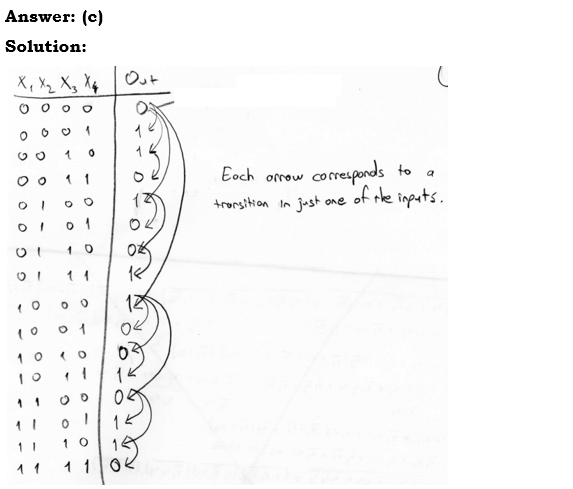 Answer: (c)
Solution:
X₁ X₂ X₃ X₄ Out
0 0 0 0 0
0 0 0 1 1
0 0 1 0 1
0 0 1 1 0
0 1 0 0 1
0 1 0 1 0
0 1 1 0 0
0 1 1 1 1
1 0 0 0 1
1 0 0 1 0
1 0 1 0 0
1 0 1 1 1
1 1 0 0 0
1 1 0 1 1
1 1 1 0 1
1 1 1 1 0
Each arrow corresponds to a
transition in just one of the inputs.